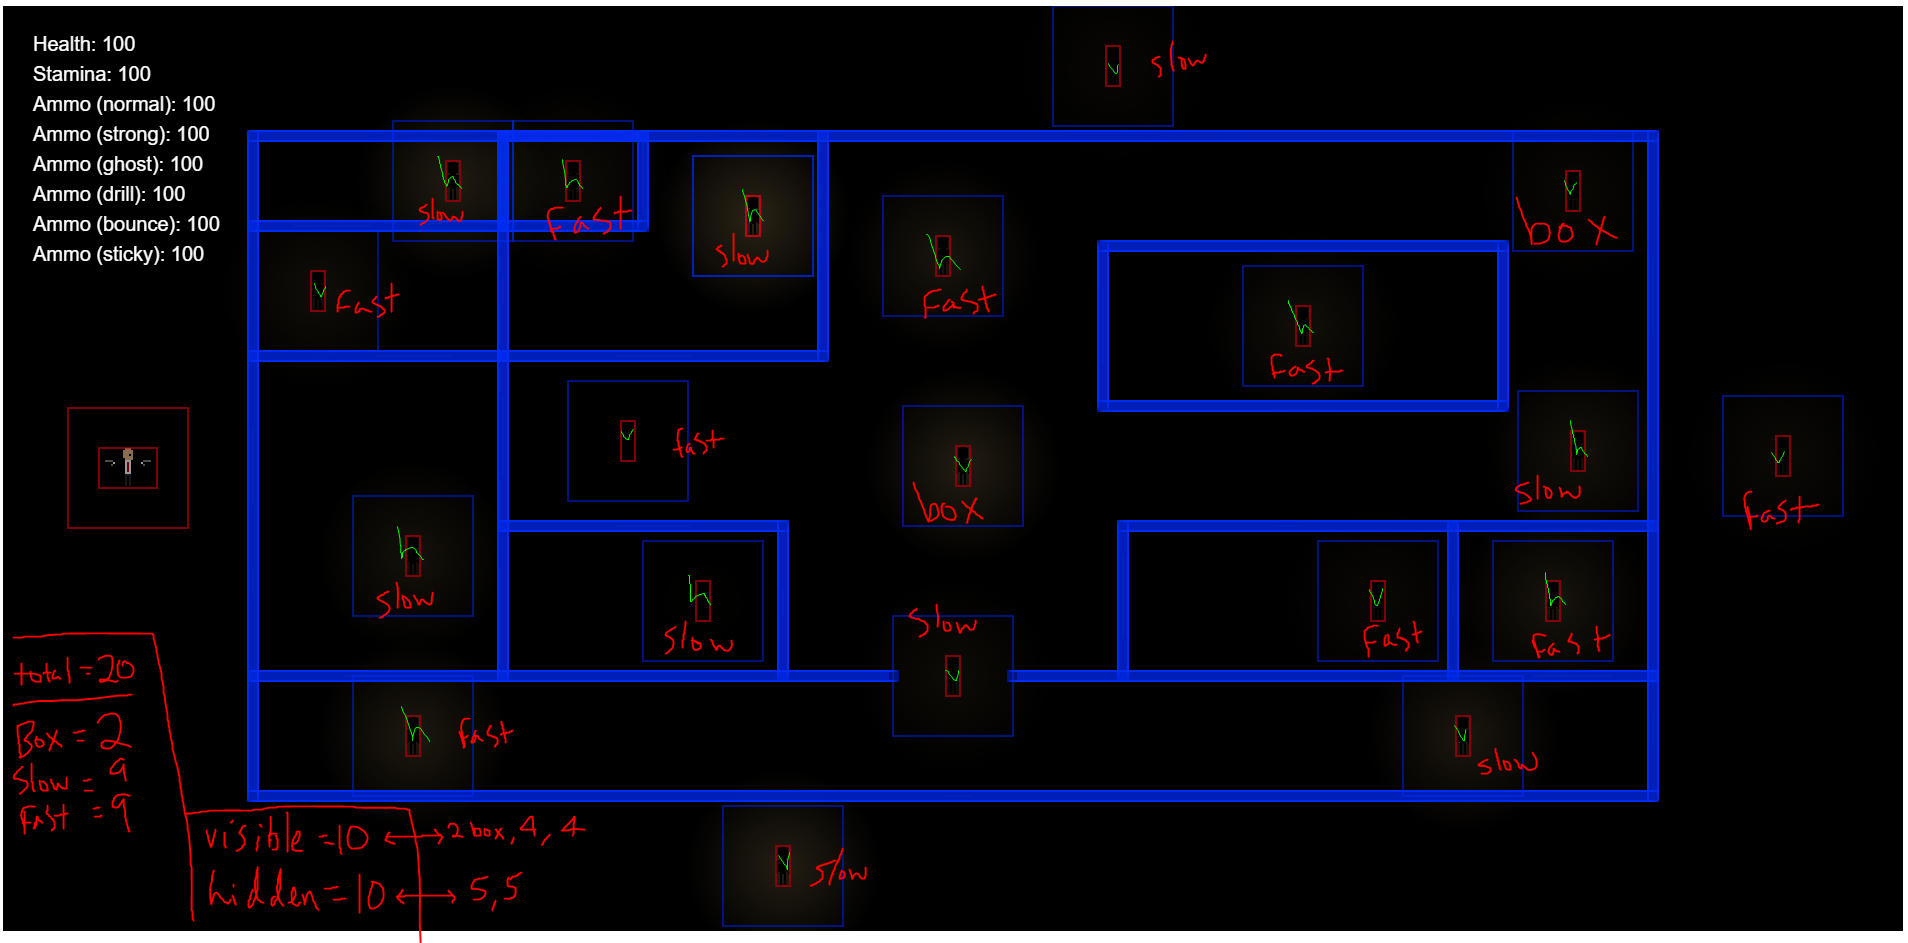 Health: 100
Stamina: 100
Ammo (normal): 100
Ammo (strong): 100
Ammo (ghost): 100
Ammo (drill): 100
Ammo (bounce): 100
Ammo (sticky): 100
v
slow
h
slow
h
Fast
h
slow
h
Fast
v
box
v
Fast
h
Fast
v
fast
v
box
h
slow
v
Fast
h
slow
h
slow
slow
v
v
Fast
h
Fast
h
Fast
v
slow
v
slow
total = 20
Box = 2
Slow = 9
Fast = 9
visible = 10 ↔ 2 box, 4, 4
hidden = 10 ↔ 5, 5